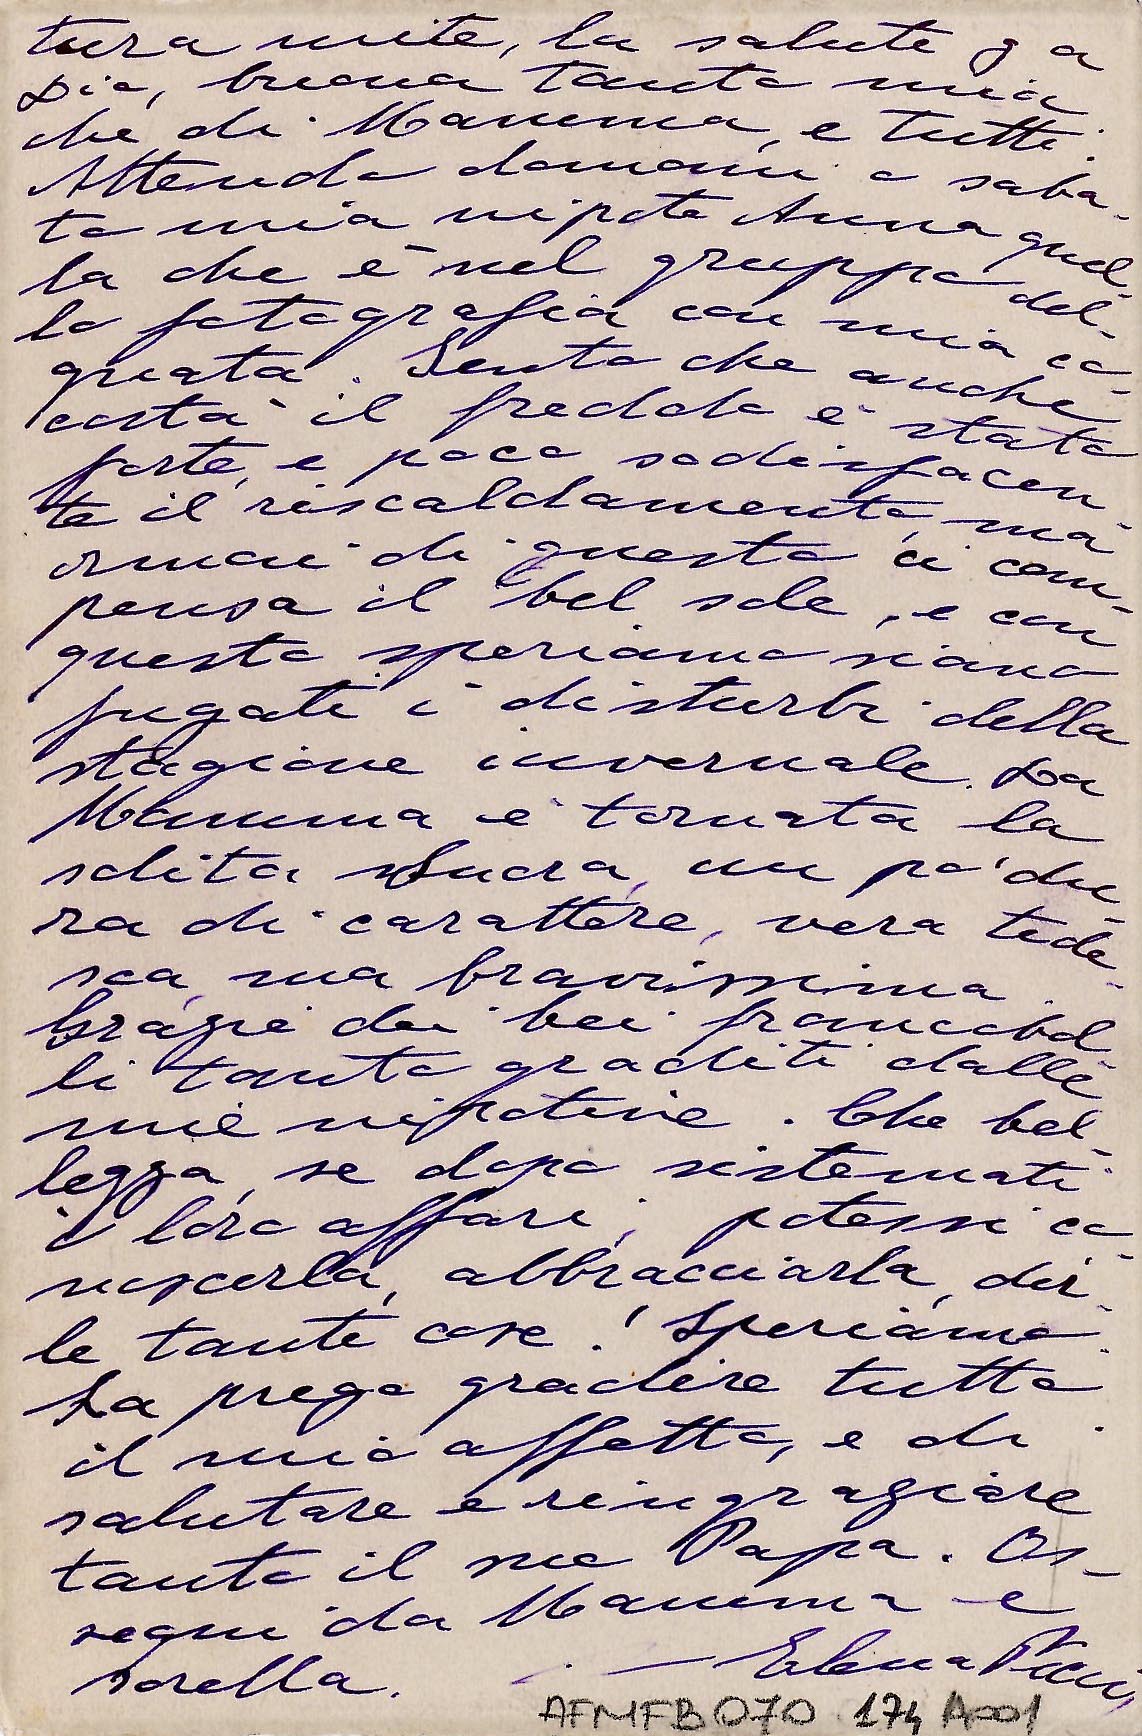 tura mite, la salute g a
Dio, buona tanto mia
che di Mamma, e tutti.
Attendo domani o saba-
to mia nipote Anna quel-
la che è nel gruppo del-
la fotografia con mia co-
gnata. Sento che anche
costà il freddo è stato
forte, e poco sodisfacen
te il riscaldamento, ma
ormai di questo ci com-
pensa il bel sole, e con
questo speriamo siano
fugati i disturbi della
stagione invernale. La
Mamma è tornata la
solita un po' du
ra di carattere, vera tede-
sca ma bravissima.
Grazie dei bei francobol-
li tanto graditi dalle
mie nipotine. Che bel-
lezza, se dopo sistemati
i loro affari, potessi co-
noscerla, abbracciarla, dir-
le tante cose! Speriamo.
La prego gradire tutto
il mio affetto, e di
salutare e ringraziare
tanto il suo Papa. Os-
sequi da Mamma e
sorella. — Elena
AFMFB070 174 A001